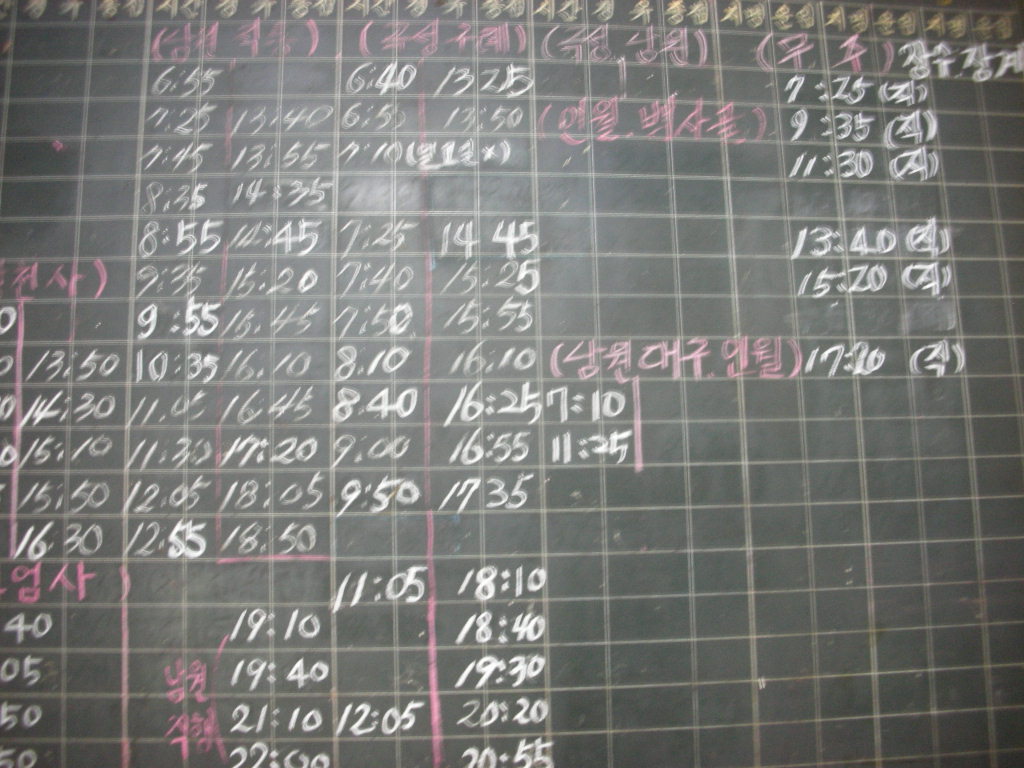 (남원 직통) (곡성 구례) (곡성 남원) (무 주) 장수 장계
6:55 6:40 13:25 7:25 (직)
7:25 13:40 6:50 13:50 (인월 백사골) 9:35 (직)
7:45 13:55 7:10 11:30 (직)
8:35 14:35
8:55 14:45 7:25 14 45 13:40 (직)
9:35 15:20 7:40 15:25 15:20 (직)
9:55 15:45 7:50 15:55
13:50 10:35 16.10 8.10 16:10 (남원 대구 인월) 17:20 (직)
14:30 11.05 16:45 8:40 16:25 7:10
15:10 11:30 17:20 9:00 16:55 11:25
15:50 12:05 18:05 9:50 17 35
16 30 12:55 18:50
업사 ) 11:05 18:10
40 19:10 18:40
05 남원 19:40 19:30
50 직행 21:10 12:05 20:20
50 22:00 20:55